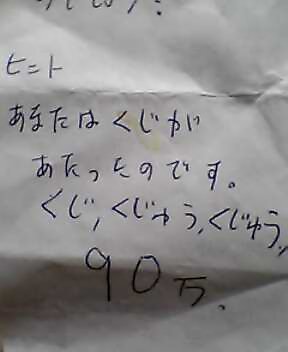 ヒント
あなたはくじが
あたったのです。
くじ,くじゅう,くじゅう,
90万.